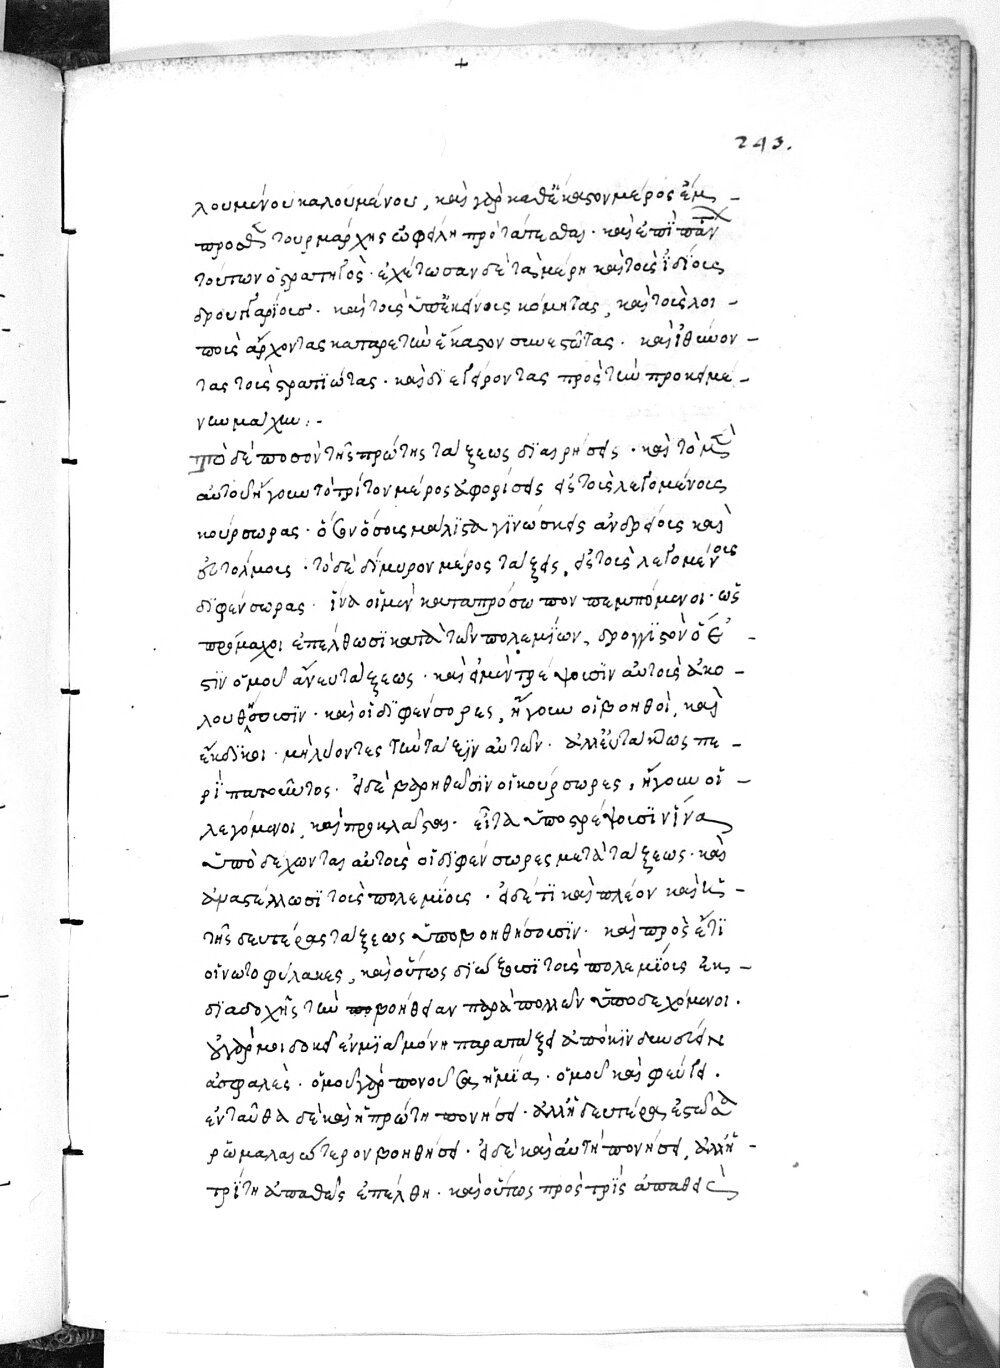 +
243.
λουμένου καλουμένου, καὶ γὰρ καθ' ἕκαστον μέρος ἔμ-
προσθεν τουρμάρχης ὠφείλη προτάττεσθαι· καὶ ἐπὶ πᾶν
τούτων ὁ στρατηγὸς· ἐχέτωσαν δὲ τὰ μέρη καὶ τοὺς ἰδίους
δρουγγαρίους· καὶ τοὺς ὑπ' ἐκείνοις κόμητας, καὶ τοὺς λοι-
ποὺς ἄρχοντας κατ' ἀρετὴν ἕκαστον συνεστῶτας· καὶ ἰθύνον-
τας τοὺς στρατιώτας· καὶ διεγείροντας πρὸς τὴν προκειμέ-
νην μάχην:-
Τὸ δὲ ποσὸν τῆς πρώτης τάξεως διαιρήσεις· καὶ τὸ μὲν
αὐτοῦ ἤγουν τὸ τρίτον μέρος ἀφορίσεις εἰς τοὺς λεγομένους
κούρσωρας· ἐν ὅσοις μάλιστα γινώσκεις ἀνδρείοις καὶ
εὐτόλμοις· τὸ δὲ δίμυρον μέρος τάξεις, εἰς τοὺς λεγομένους
διφένσωρας· ἵνα οἱ μὲν κατὰ πρόσωπον πεμπόμενοι· ὡς
πρόμαχοι ἐπέλθωσι κατὰ τῶν πολεμίων, δρογγιστὸν ὅ ἐ-
στιν ὁμοῦ ἄνευ τάξεως· καὶ εἰ μὲν τρέψουσιν αὐτοὺς ἀκο-
λουθήσουσιν· καὶ οἱ διφένσορες, ἤγουν οἱ βοηθοὶ, καὶ
ἔκδικοι· μὴ λύοντες τὴν τάξιν αὐτῶν· ἀλλ' εὐτάκτως πε-
ριπατοῦντες· εἰ δὲ βαρηθῶσιν οἱ κούρσωρες, ἤγουν οἱ
λεγόμενοι, καὶ προκλάσται· εἶτα ὑποστρέψουσιν ἵνα
ὑποδέχωνται αὐτοὺς οἱ διφένσωρες μετὰ τάξεως· καὶ
ἀναστέλλωσι τοὺς πολεμίους· εἰ δέ τι καὶ πλέον καὶ ἐκ
τῆς δευτέρας τάξεως ὑποβοηθήσουσιν· καὶ πρὸς ἔτι
οἱ νωτοφύλακες, καὶ οὕτως διώξουσι τοὺς πολεμίους ἐκ
διαδοχῆς τὴν βοήθειαν παρὰ πολλῶν ὑποδεχόμενοι·
οὐ γὰρ μοι δοκεῖ ἐν μιᾷ μόνη παραταξει ἀποκινδυνεύειν
ἀσφαλές· ὁμοῦ γὰρ πονοῦσαι ἡ μία· ὁμοῦ καὶ φεύγει·
ἐνταῦθα δὲ κἂν ἡ πρώτη πονήσει· ἀλλ' ἡ δευτέρα
ῥωμαλαιώτερον βοηθήσει· εἰ δὲ καὶ αὐτὴ πονήσει, ἀλλ' ἡ
τρίτη ἀπαθὴς ἐπέλθη· καὶ οὕτως πρὸς τρὶς ἀπαθεῖς